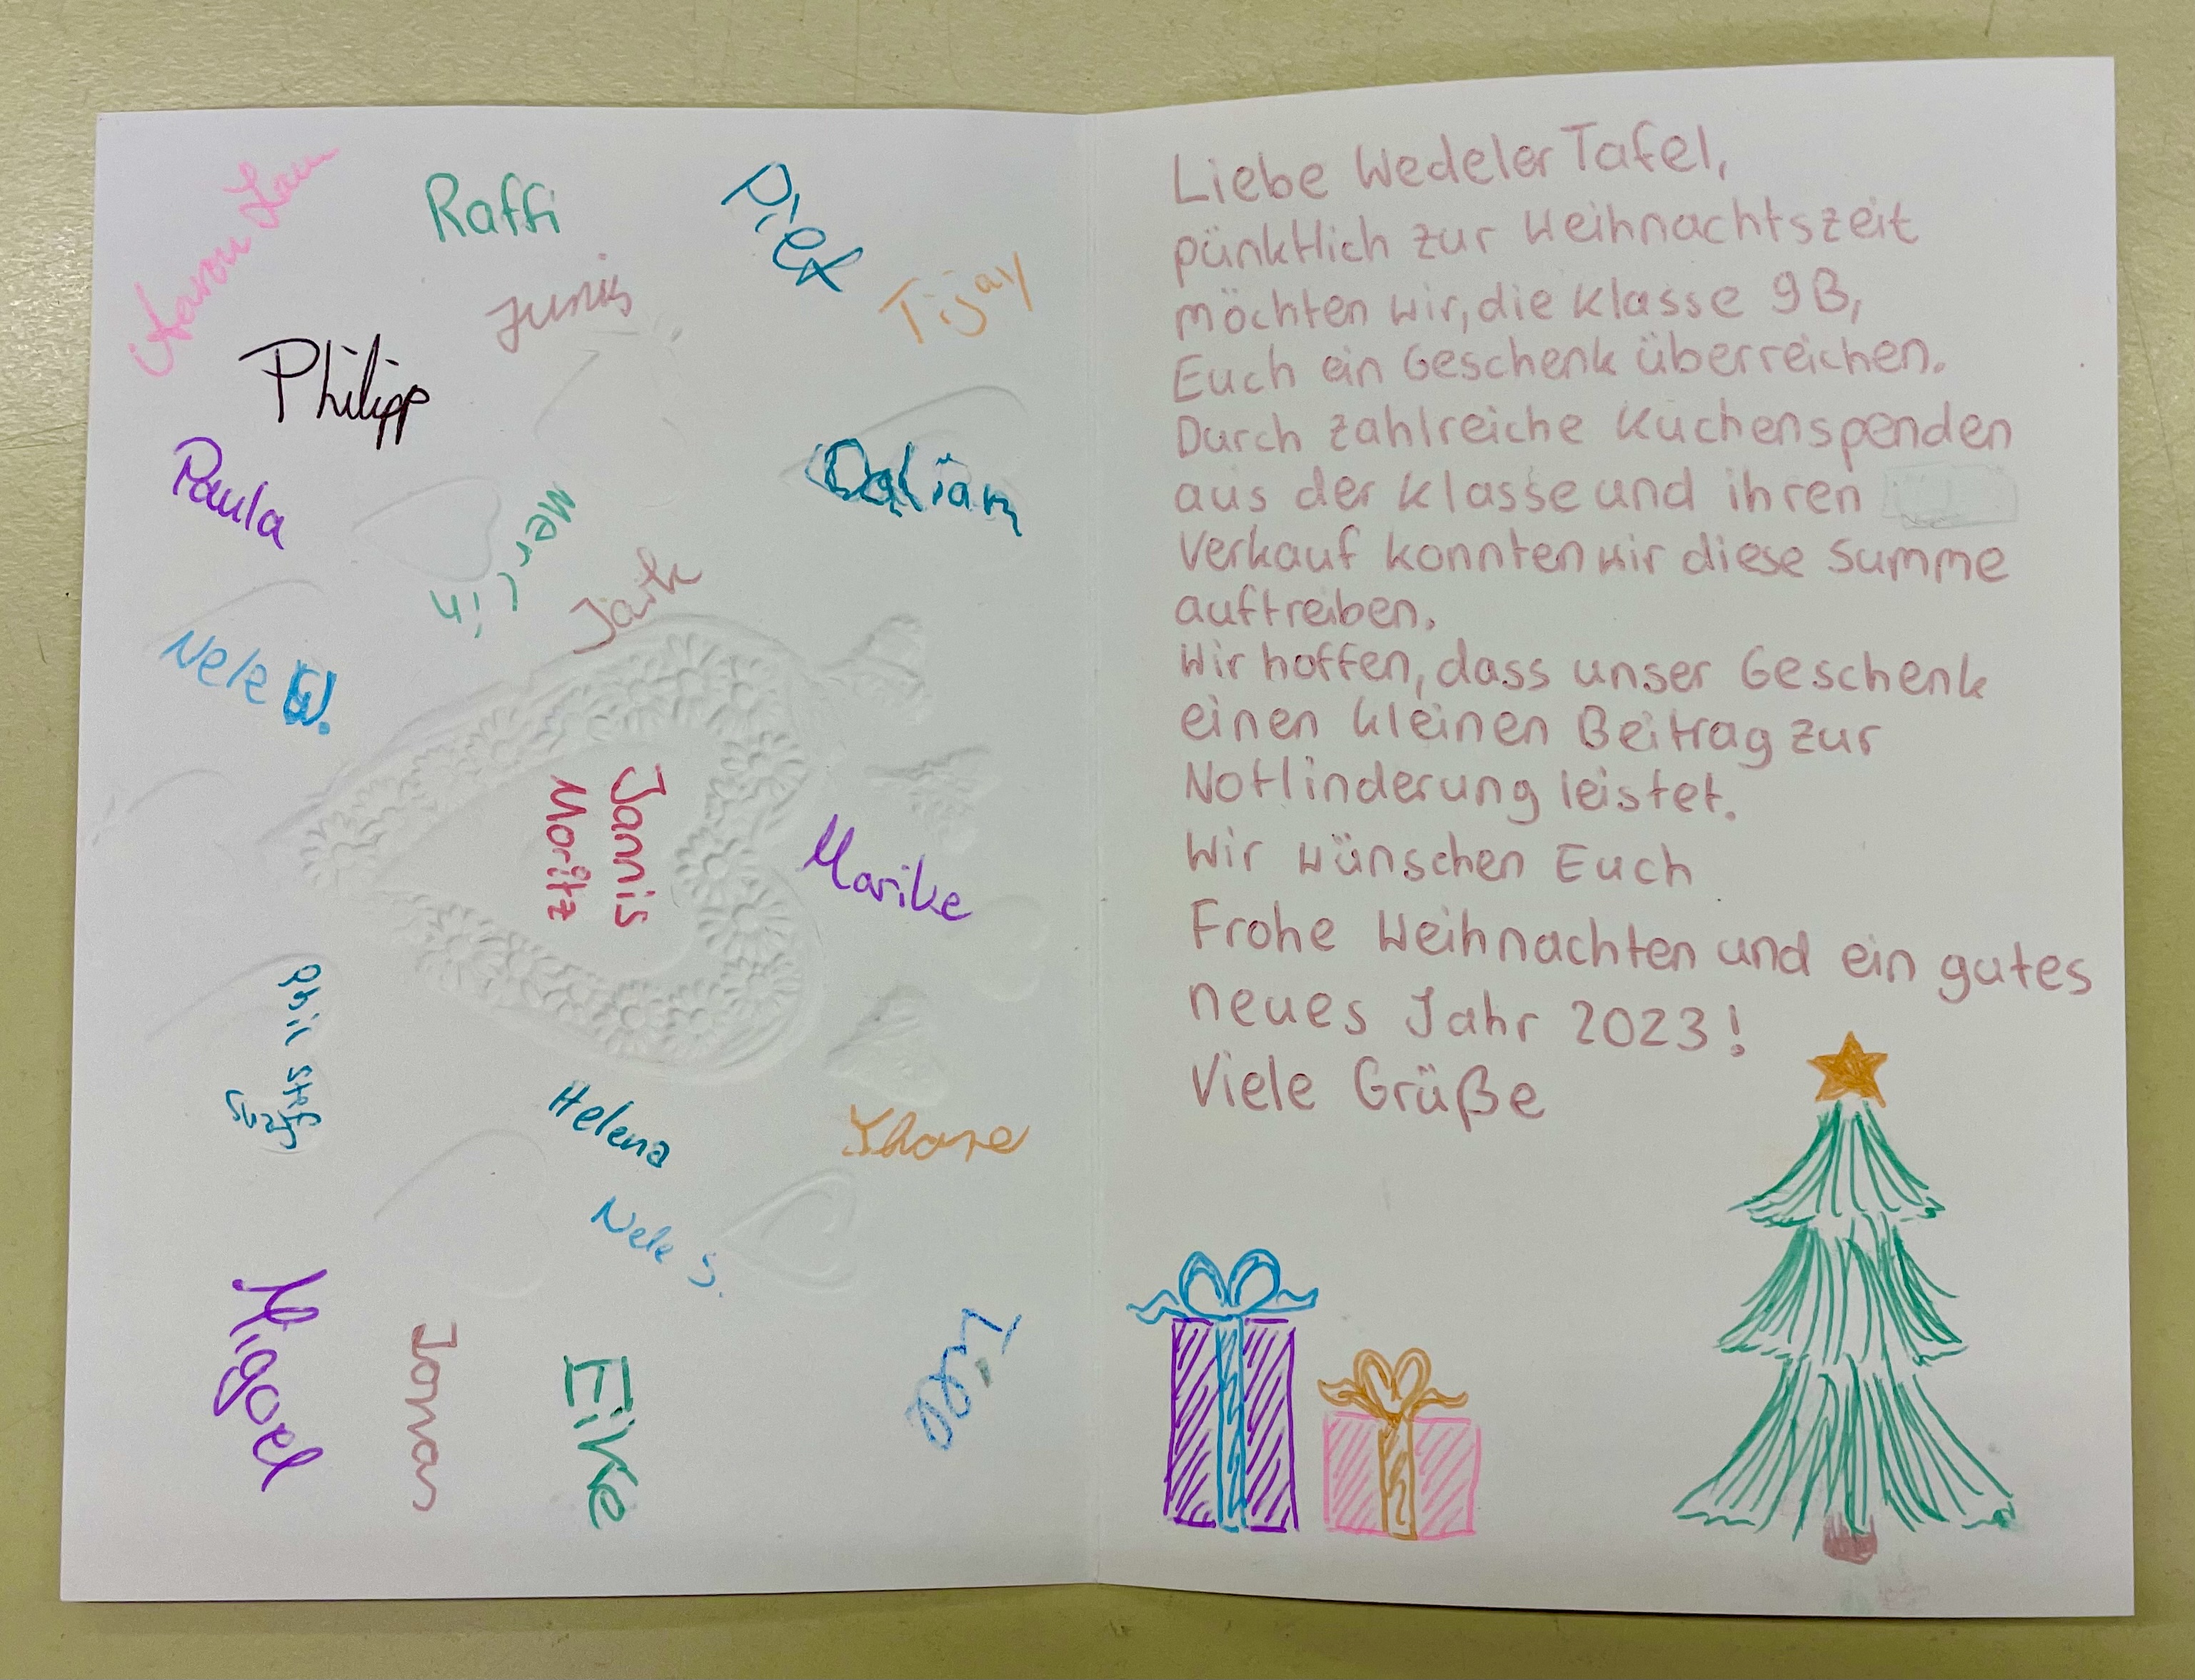 Raffi
Piet
Junis
Tijay
Philipp
Paula
Merlin
Jark
Nele G.
Jannis
Moritz
Marike
Phil
Helena
Nele S.
Migael
Jonas
Eike
Liebe Wedeler Tafel,
pünktlich zur Weihnachtszeit
möchten wir, die Klasse 9B,
Euch ein Geschenk überreichen.
Durch zahlreiche Kuchenspenden
aus der Klasse und ihren
Verkauf konnten wir diese Summe
auftreiben.
Wir hoffen, dass unser Geschenk
einen kleinen Beitrag zur
Notlinderung leistet.
Wir wünschen Euch
Frohe Weihnachten und ein gutes
neues Jahr 2023!
Viele Grüße